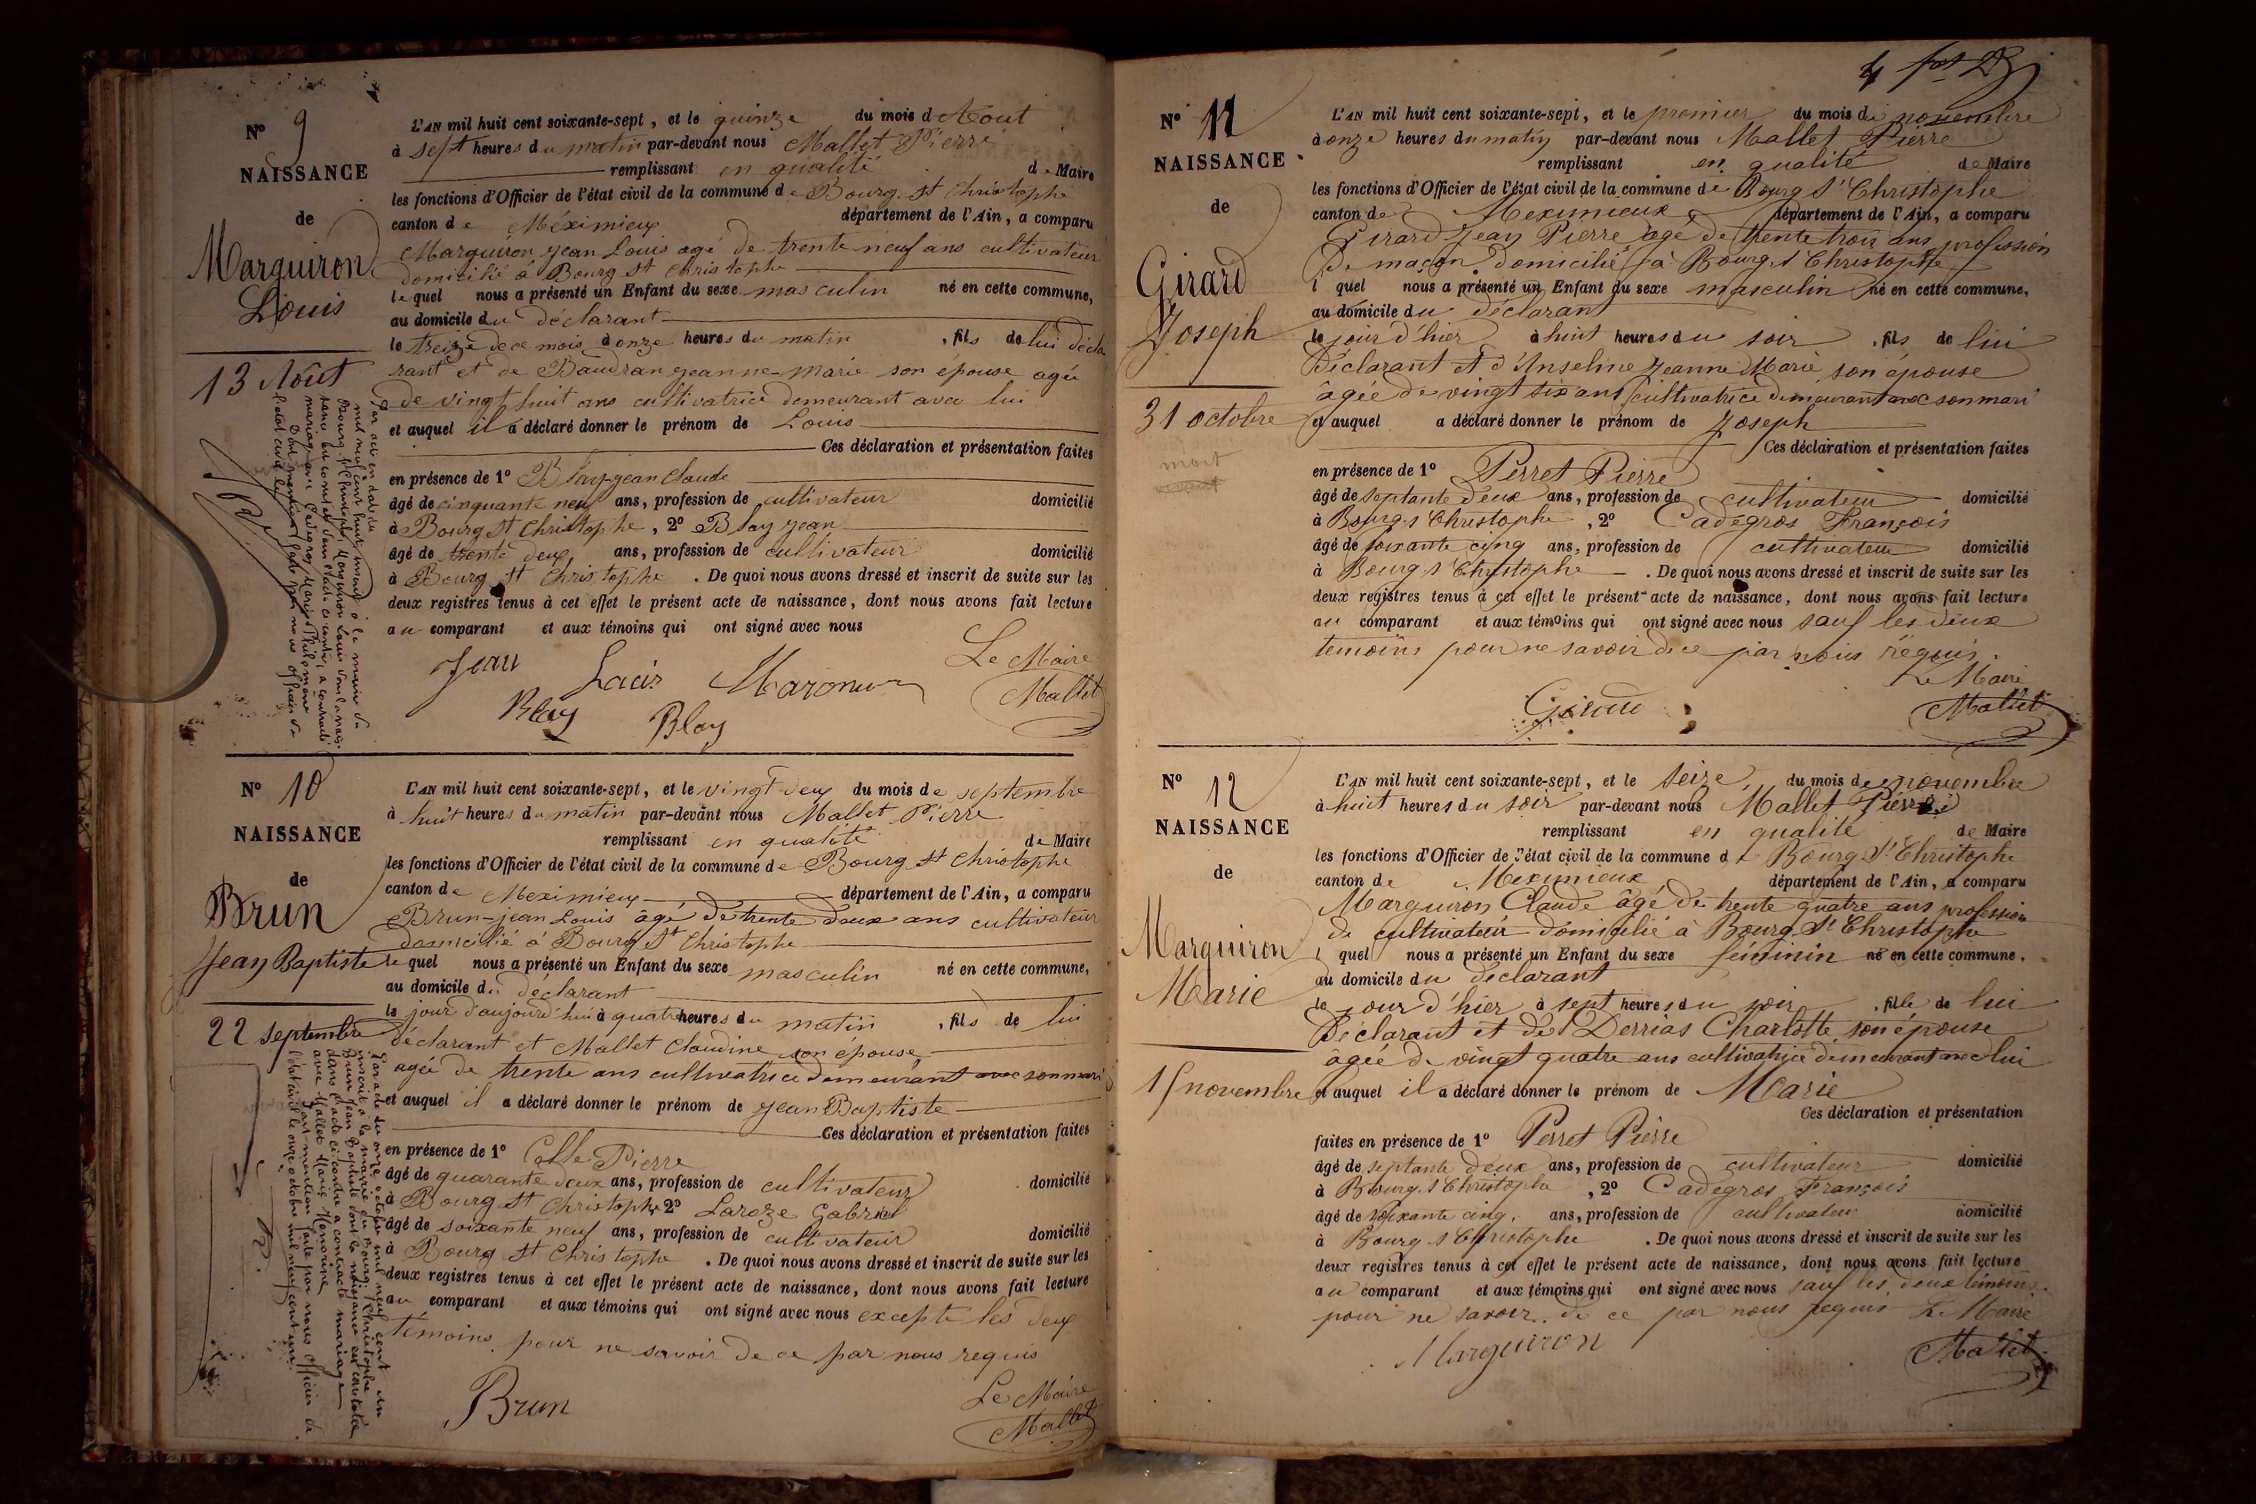 Nº 9
NAISSANCE
de
Marguiron
Louis
13 Août
L'AN mil huit cent soixante-sept, et le quinze du mois d Aout
à sept heures du matin par-devant nous Mallet Pierre
remplissant en qualité de Maire
les fonctions d'Officier de l'état civil de la commune de Bourg St Christophe
canton de Méximieux département de l'Ain, a comparu
Marguiron Jean Louis agé de trente neuf ans cultivateur
domicilié à Bourg St Christophe
lequel nous a présenté un Enfant du sexe masculin né en cette commune,
au domicile du déclarant
le treize de ce mois à onze heures du matin, fils de lui décla
rant et de Baudran jeanne-marie son épouse agée
de vingt huit ans cultivatrice demeurant avec lui
et auquel il a déclaré donner le prénom de Louis
Ces déclaration et présentation faites
en présence de 1º Blay jean Claude
âgé de cinquante neuf ans, profession de cultivateur domicilié
à Bourg St Christophe, 2º Blay jean
âgé de trente deux ans, profession de cultivateur domicilié
à Bourg St Christophe. De quoi nous avons dressé et inscrit de suite sur les
deux registres tenus à cet effet le présent acte de naissance, dont nous avons fait lecture
au comparant et aux témoins qui ont signé avec nous
Jean Le Maire
Blay Blay Mallet
Nº 10
NAISSANCE
de
Brun
Jean Baptiste
22 septembre
L'AN mil huit cent soixante-sept, et le vingt deux du mois de septembre
à huit heures du matin par-devant nous Mallet Pierre
remplissant en qualité de Maire
les fonctions d'Officier de l'état civil de la commune de Bourg St Christophe
canton de Meximieux département de l'Ain, a comparu
Brun-jean Louis agé de trente deux ans cultivateur
domicilié à Bourg St Christophe
le quel nous a présenté un Enfant du sexe masculin né en cette commune,
au domicile du déclarant
le jour d'aujourd'hui à quatre heures du matin, fils de lui
déclarant et Mallet Claudine son épouse
agée de trente ans cultivatrice demeurant avec son mari
et auquel il a déclaré donner le prénom de jean Baptiste
Ces déclaration et présentation faites
en présence de 1º Colle Pierre
âgé de quarante deux ans, profession de cultivateur domicilié
à Bourg St Christophe 2º Laroze Gabriel
âgé de soixante neuf ans, profession de cultivateur domicilié
à Bourg St Christophe. De quoi nous avons dressé et inscrit de suite sur les
deux registres tenus à cet effet le présent acte de naissance, dont nous avons fait lecture
au comparant et aux témoins qui ont signé avec nous excepte les deux
témoins pour ne savoir de ce par nous requis
Le Maire
Brun Mallet
Nº 11
NAISSANCE
de
Girard
Joseph
31 octobre
mort
L'AN mil huit cent soixante-sept, et le premier du mois de novembre
à onze heures du matin par-devant nous Mallet Pierre
remplissant en qualité de Maire
les fonctions d'Officier de l'état civil de la commune de Bourg St Christophe
canton de Meximieux département de l'Ain, a comparu
Girard Jean Pierre âgé de trente trois ans profession
de maçon domicilié à Bourg St Christophe
l quel nous a présenté un Enfant du sexe masculin né en cette commune,
au domicile du déclarant
le jour d'hier à huit heures du soir, fils de lui
déclarant et d'Anselme Jeanne Marie son épouse
âgée de vingt six ans cultivatrice demeurant avec son mari
et auquel a déclaré donner le prénom de Joseph
Ces déclaration et présentation faites
en présence de 1º Perret Pierre
âgé de septante deux ans, profession de cultivateur domicilié
à Bourg St Christophe, 2º Cadegros François
âgé de soixante cinq ans, profession de cultivateur domicilié
à Bourg St Christophe. De quoi nous avons dressé et inscrit de suite sur les
deux registres tenus à cet effet le présent acte de naissance, dont nous avons fait lecture
au comparant et aux témoins qui ont signé avec nous sauf les deux
témoins pour ne savoir de ce par nous requis.
Le Maire
Girard Mallet
Nº 12
NAISSANCE
de
Marguiron
Marie
15 novembre
L'AN mil huit cent soixante-sept, et le seize du mois de novembre
à huit heures du soir par-devant nous Mallet Pierre
remplissant en qualité de Maire
les fonctions d'Officier de l'état civil de la commune de Bourg St Christophe
canton de Meximieux département de l'Ain, a comparu
Marguiron Claude âgé de trente quatre ans profession
de cultivateur domicilié à Bourg St Christophe
l quel nous a présenté un Enfant du sexe féminin né en cette commune.
au domicile du déclarant
le jour d'hier à sept heures du soir, fille de lui
Déclarant et de Derrias Charlotte son épouse
âgée de vingt quatre ans cultivatrice demeurant avec lui
et auquel il a déclaré donner le prénom de Marie
Ces déclaration et présentation
faites en présence de 1º Perret Pierre
âgé de septante deux ans, profession de cultivateur domicilié
à Bourg St Christophe, 2º Cadegros François
âgé de soixante cinq. ans, profession de cultivateur domicilié
à Bourg St Christophe. De quoi nous avons dressé et inscrit de suite sur les
deux registres tenus à cet effet le présent acte de naissance, dont nous avons fait lecture
au comparant et aux témoins qui ont signé avec nous sauf les deux témoins
pour ne savoir de ce par nous requis Le Maire
Marguiron Mallet